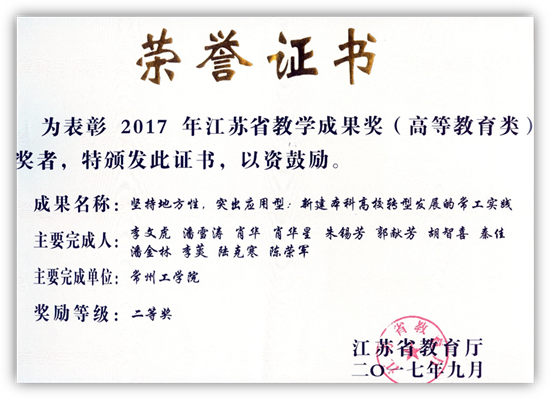 荣誉证书
为表彰 2017 年江苏省教学成果奖（高等教育类）
奖者，特颁发此证书，以资鼓励。
成果名称：坚持地方性，突出应用型：新建本科高校转型发展的常工实践
主要完成人：李文虎 潘雪涛 肖华 肖华星 朱锡芳 郭献芳 胡智喜 秦佳
潘金林 李荧 陆克寒 陈荣军
主要完成单位：常州工学院
奖励等级：二等奖
江苏省教育厅
江苏省教育厅
二〇一七年九月